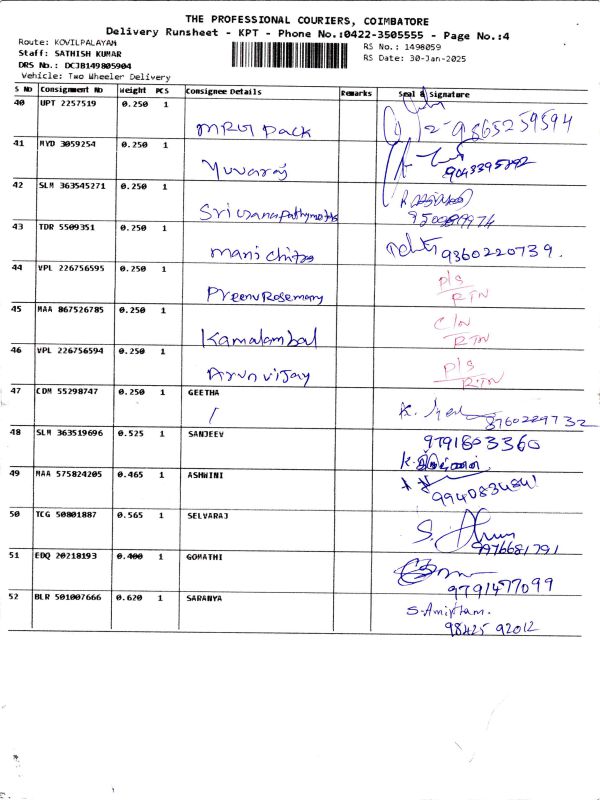 THE PROFESSIONAL COURIERS, COIMBATORE
Delivery Runsheet - KPT - Phone No.:0422-3505555 - Page No.:4
Route: KOVILPALAYAM
Staff: SATHISH KUMAR
DRS No.: DCJB149805904
Vehicle: Two Wheeler Delivery
RS No.: 1498059
RS Date: 30-Jan-2025
S No Consignment No Weight PCS Consignee Details Remarks Seal & Signature
40 UPT 2257519 0.250 1
MRG Pack 9865259594
41 MYD 3059254 0.250 1
Yuvaraj
42 SLM 363545271 0.250 1
43 TDR 5509351 0.250 1
Mani Chitra 9360220739.
44 VPL 226756595 0.250 1
Preenu Rosemary P/S RTN
45 MAA 867526785 0.250 1
Kamalambal C/N RTN
46 VPL 226756594 0.250 1
Arun vijay P/S RTN
47 CDM 55298747 0.250 1 GEETHA
8760229732
48 SLM 363519696 0.525 1 SANJEEV
9791603360
49 MAA 575824205 0.465 1 ASHWINI
9940834841
50 TCG 50801887 0.565 1 SELVARAJ
9976681791
51 EDQ 20218193 0.400 1 GOMATHI
9791477099
52 BLR 501007666 0.620 1 SARANYA
98425 92012